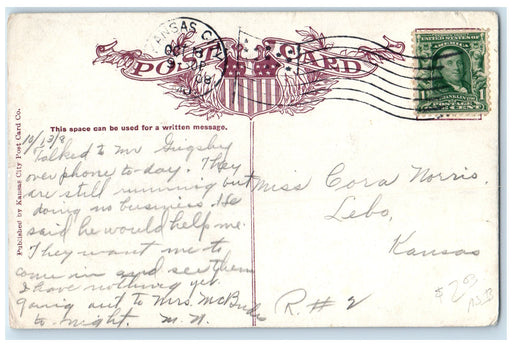 KANSAS CITY
OCT 13
08
POST CARD
UNITED STATES OF
AMERICA
FRANKLIN
1 POSTAGE 1
This space can be used for a written message.
Published by Kansas City Post Card Co.
10/13/8
Talked to Mr Grigsby
over phone to-day. They
are still running but
doing no business. He
said he would help me.
They want me to
come in and see them
I have nothing yet.
Going out to Mrs. McBride
to-night. M.N.
Miss Cora Norris.
Lebo,
Kansas
R. # 2
$ 2